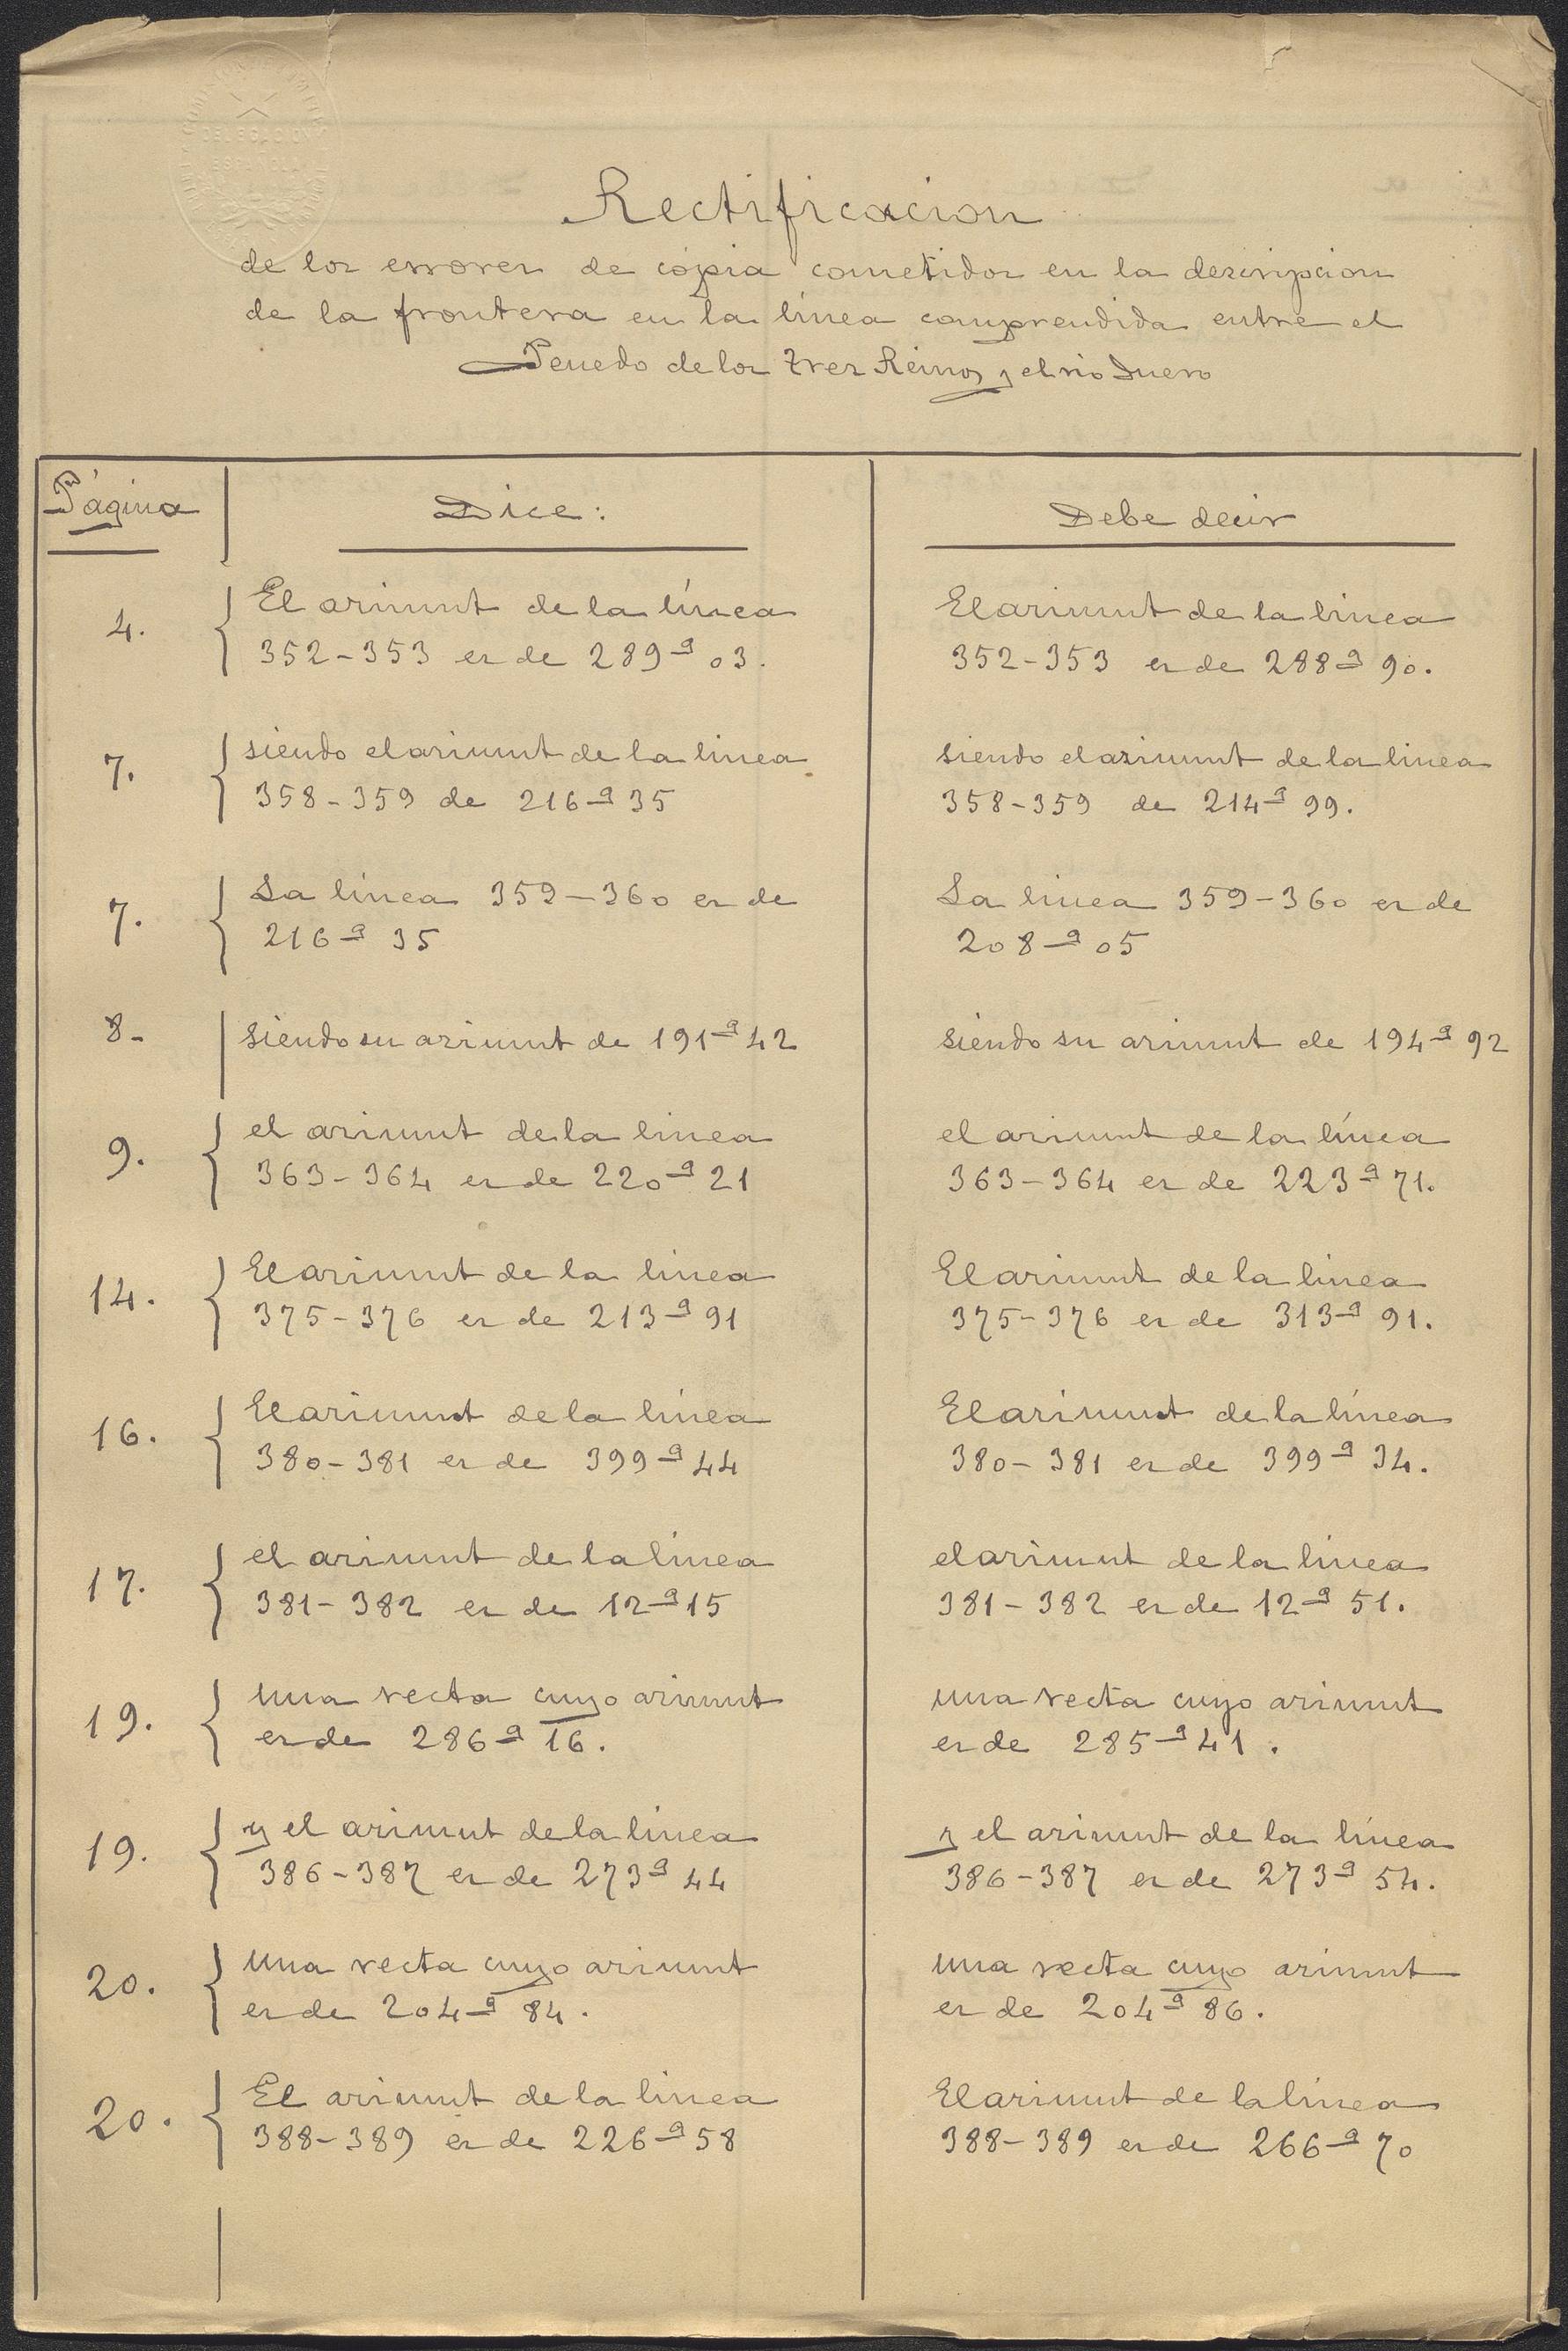 Rectificacion
de los errores de cópia cometidos en la descripcion
de la frontera en la linea comprendida entre el
Penedo de los Tres Reinos y el rio Duero
Página
Dice:
Debe decir
4.
El azimut de la línea
352-353 es de 289g 03.
El azimut de la linea
352-353 es de 288g 90.
7.
siendo el azimut de la linea
358-359 de 216g 35
siendo el azimut de la linea
358-359 de 214g 99.
7.
La línea 359-360 es de
216g 35
La linea 359-360 es de
208g 05
8-
siendo su azimut de 191g 42
siendo su azimut de 194g 92
9.
el azimut de la linea
363-364 es de 220g 21
el azimut de la línea
363-364 es de 223g 71.
14.
El azimut de la linea
375-376 es de 213g 91
El azimut de la linea
375-376 es de 313g 91.
16.
El azimut de la línea
380-381 es de 399g 44
El azimut de la línea
380-381 es de 399g 34.
17.
el azimut de la línea
381-382 es de 12g 15
el azimut de la línea
381-382 es de 12g 51.
19.
una recta cuyo azimut
es de 286g 16.
una recta cuyo azimut
es de 285g 41.
19.
y el azimut de la línea
386-387 es de 273g 44
y el azimut de la línea
386-387 es de 273g 54.
20.
una recta cuyo azimut
es de 204g 84.
una recta cuyo azimut
es de 204g 86.
20.
El azimut de la linea
388-389 es de 226g 58
El azimut de la línea
388-389 es de 266g 70